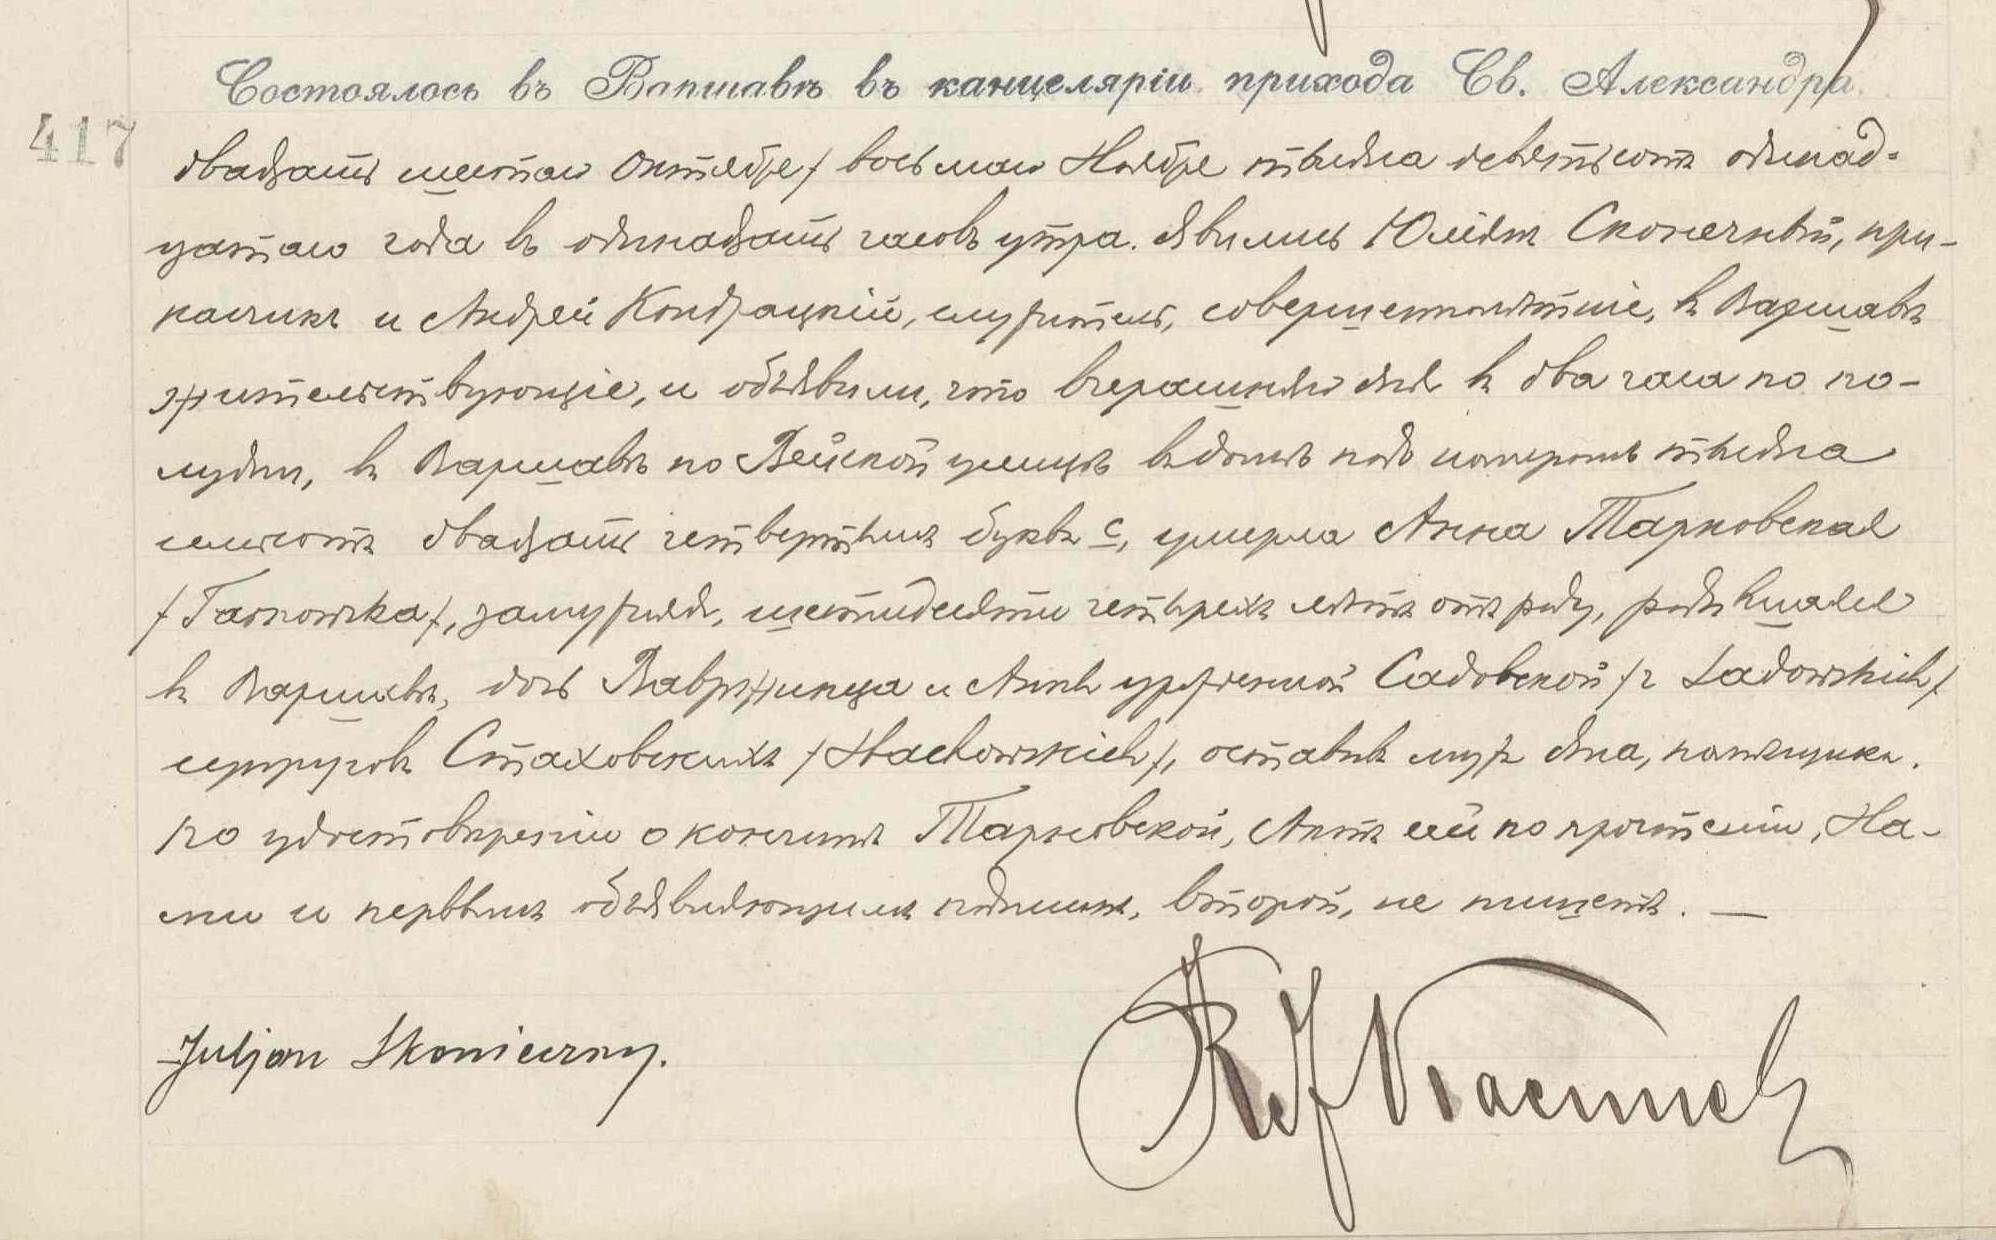 Состоялось въ Варшавѣ въ канцеляріи прихода Св. Александра
417
двадцать шестаго Октября / восьмаго Ноября тысяча девятьсотъ одинад-
цатаго года въ одинадцать часовъ утра. Явились Юліянъ Сконечный, при-
казчикъ и Андрей Кондрацкій, служитель, совершеннолѣтніе, въ Варшавѣ
жительствующіе, и объявили, что вчерашняго дня въ два часа по по-
лудни, въ Варшавѣ по Вейской улицѣ въ домѣ подъ номеромъ тысяча
семьсотъ двадцать четвертымъ букв. с, умерла Анна Тарновская
/Tarnowska/, замужняя, шестидесяти четырехъ лѣтъ отъ роду, родившаяся
въ Варшавѣ, дочь Вавржинца и Анны урожденной Садовской /z Sadowskich/
супруговъ Стаховскихъ /Stachowskich/, оставивъ мужа Яна,
По удостовѣреніи о кончинѣ Тарновской, Актъ сей по прочтеніи, На-
ми и первымъ объявляющимъ подписанъ, второй, не пишетъ. —
Juljan Skonieczny.